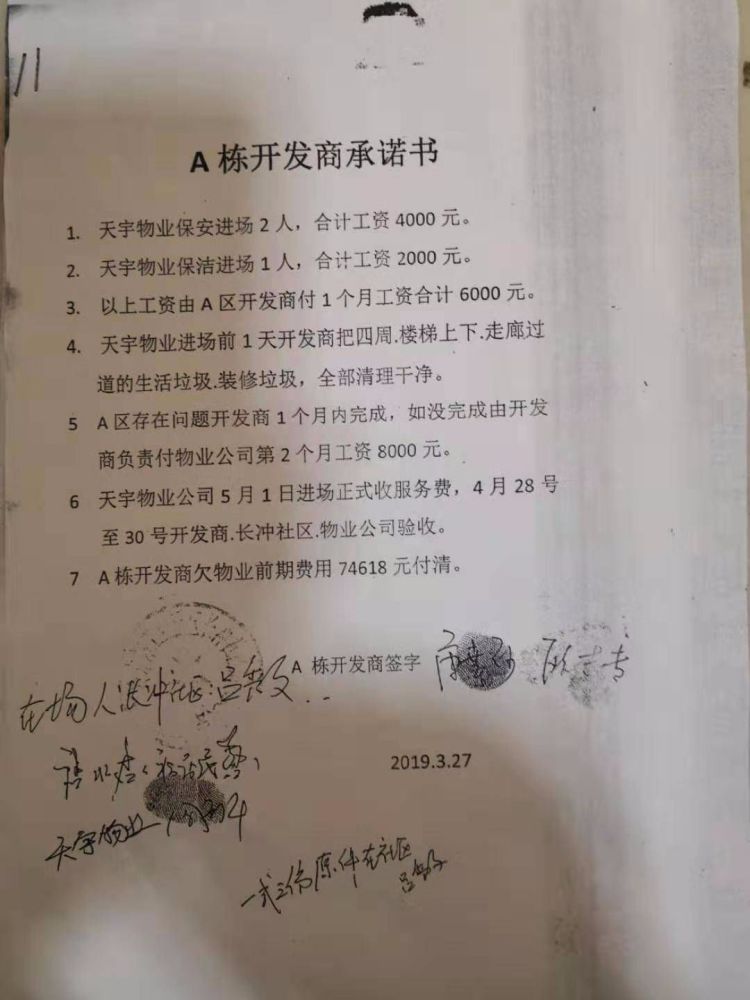 11
A 栋开发商承诺书
1. 天宇物业保安进场 2 人，合计工资 4000 元。
2. 天宇物业保洁进场 1 人，合计工资 2000 元。
3. 以上工资由 A 区开发商付 1 个月工资合计 6000 元。
4. 天宇物业进场前 1 天开发商把四周.楼梯上下.走廊过
道的生活垃圾.装修垃圾，全部清理干净。
5 A 区存在问题开发商 1 个月内完成，如没完成由开发
商负责付物业公司第 2 个月工资 8000 元。
6 天宇物业公司 5 月 1 日进场正式收服务费，4 月 28 号
至 30 号开发商.长冲社区.物业公司验收。
7 A 栋开发商欠物业前期费用 74618 元付清。
A 栋开发商签字
在场人长冲社区:吕
2019.3.27
天宇物业
一式三份原件在社区